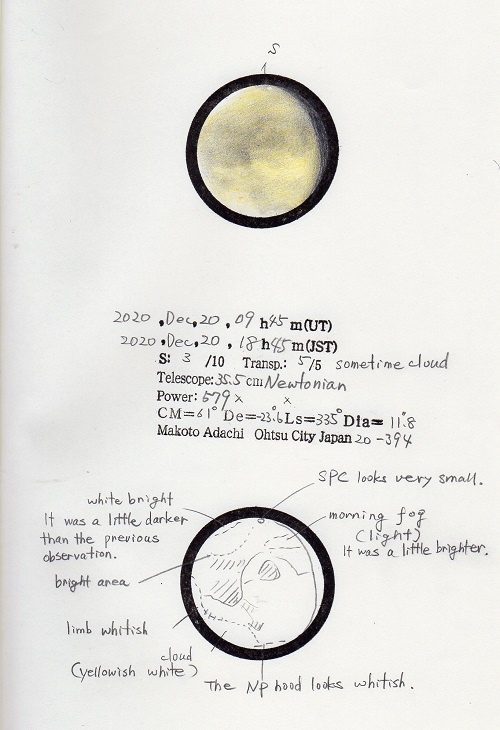 S
2020 , Dec, 20 , 09 h 45 m (UT)
2020 , Dec, 20 , 18 h 45 m (JST)
S: 3 /10 Transp.: 5/5 sometime cloud
Telescope: 35.5 cm Newtonian
Power: 579 × ×
CM= 61° De= -23.6 Ls= 335° Dia= 11".8
Makoto Adachi Ohtsu City Japan 20 - 394
SPC looks very small.
white bright
It was a little darker
than the previous
observation.
morning fog
(light)
It was a little brighter.
bright area
limb whitish
cloud
(yellowish white)
The Np hood looks whitish.